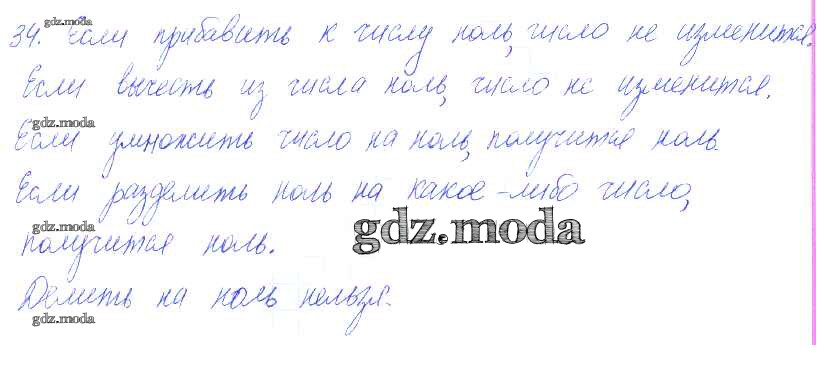 gdz.moda
34. Если прибавить к числу ноль, число не изменится.
Если вычесть из числа ноль, число не изменится.
gdz.moda
Если умножить число на ноль, получится ноль.
Если разделить ноль на какое-либо число,
gdz.moda
получится ноль.
gdz.moda
Делить на ноль нельзя.
gdz.moda